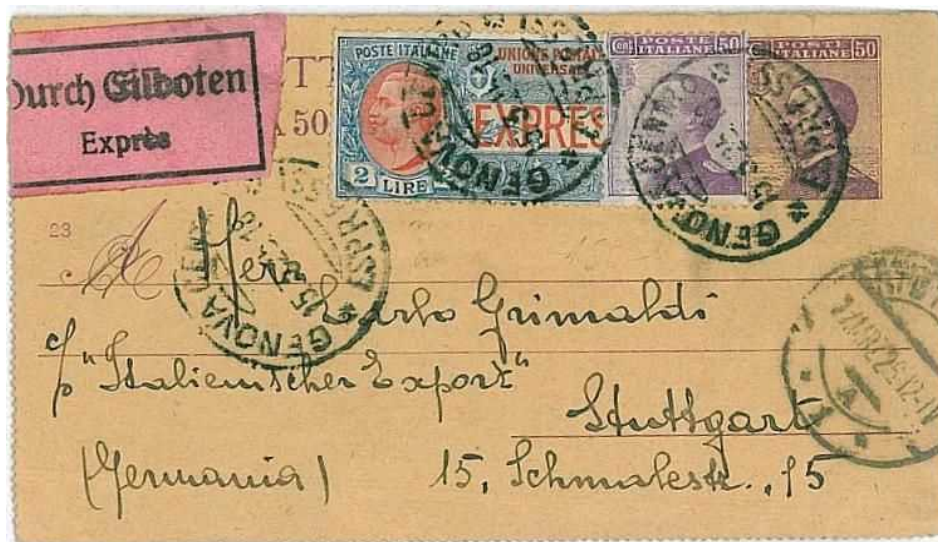 Durch Eilboten
Exprès
TT
A 50
POSTE ITALIANE
UNIONE POSTALE
UNIVERSALE
EXPRES
2 LIRE
50 POSTE ITALIANE 50
POSTE ITALIANE 50
GENOVA CENTRO
ESPRESSI
15
GENOVA CENTRO
ESPRESSI
15
GENOVA CENTRO
ESPRESSI
15
23
A Herr
Carlo Grimaldi
p/ "Italienischer Export"
Stuttgart
(Germania) 15, Schmalestr., 15